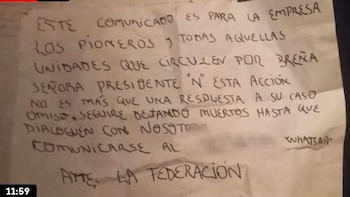 ESTE COMUNICADO ES PARA LA EMPRESA
LOS PIONEROS Y TODAS AQUELLAS
UNIDADES QUE CIRCULEN POR BREÑA
SEÑORA PRESIDENTE "N" ESTA ACCIÓN
NO ES MÁS QUE UNA RESPUESTA A SU CASO
OMISO. SEGUIRE DEJANDO MUERTOS HASTA QUE
DIALOGUEN CON NOSOT
COMUNICARSE AL WHATSAP
ATTE. LA FEDERACIÓN
11:59